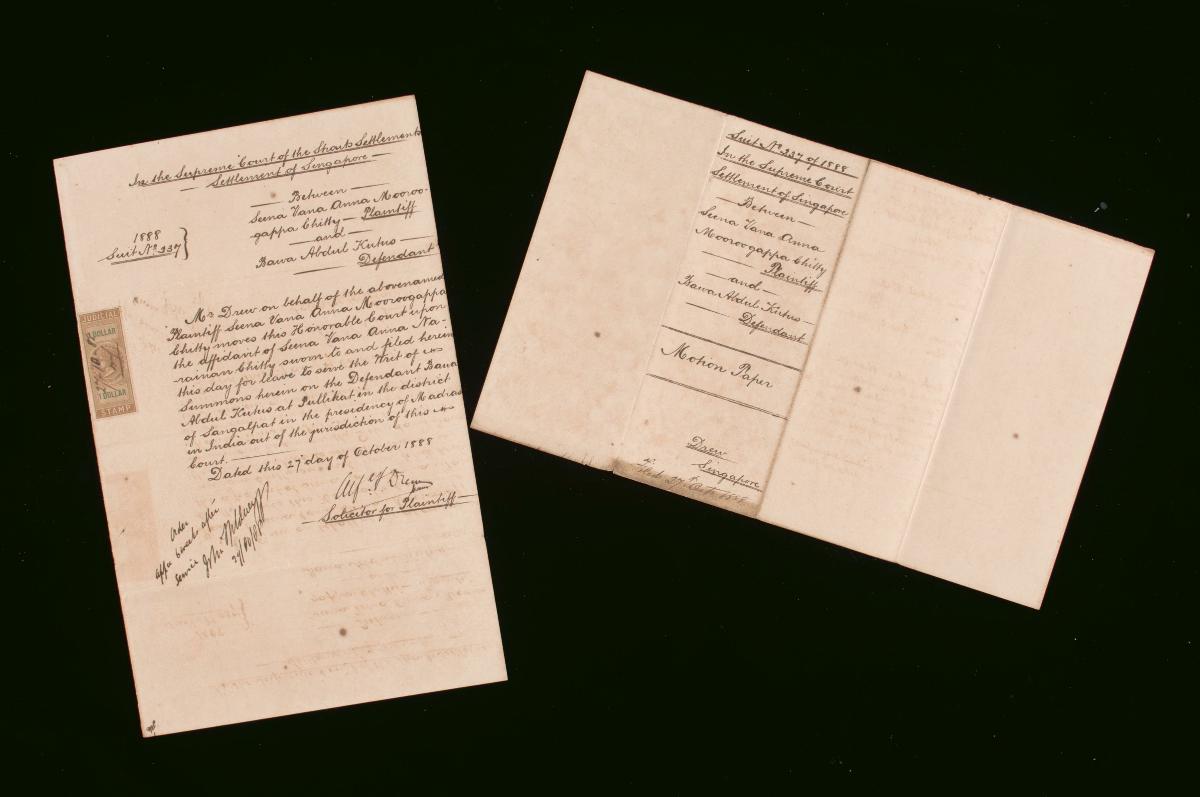 In the Supreme Court of the Straits Settlements
Settlement of Singapore
Between
Seena Vana Anna Mooroo-
gappa Chitty Plaintiff
and
Bawa Abdul Kutus
Defendant
1888
Suit No 237
Mr Drew on behalf of the abovenamed
Plaintiff Seena Vana Anna Mooroogappa
Chitty moves this Honorable Court upon
the affidavit of Seena Vana Anna Na-
rainan Chitty sworn to and filed herein
this day for leave to serve the Writ of
Summons herein on the Defendant Bawa
Abdul Kutus at Pullikat in the district
of Sangalpat in the presidency of Madras
in India out of the jurisdiction of this
Court.
Dated this 27 day of October 1888
Alf. Drew
Solicitor for Plaintiff
JUDICIAL
1 DOLLAR
1 DOLLAR
STAMP
Order
after
service John
Suit No 237 of 1888
In the Supreme Court
Settlement of Singapore
Between
Seena Vana Anna
Mooroogappa Chitty
Plaintiff
and
Bawa Abdul Kutus
Defendant
Motion Paper
Drew
Singapore